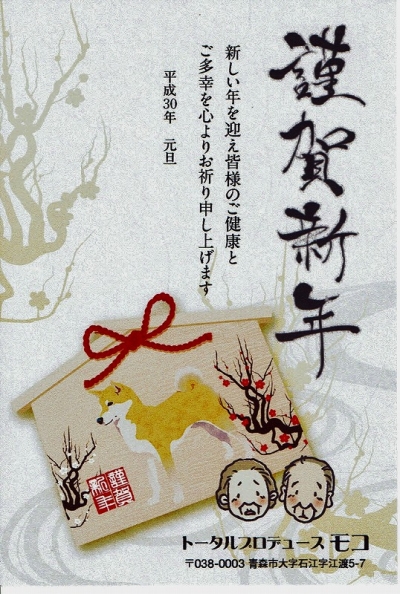 謹賀新年
新しい年を迎え皆様のご健康と
ご多幸を心よりお祈り申し上げます
平成30年 元旦
謹賀
新年
トータルプロデュース モコ
〒038-0003 青森市大字石江字江渡5-7